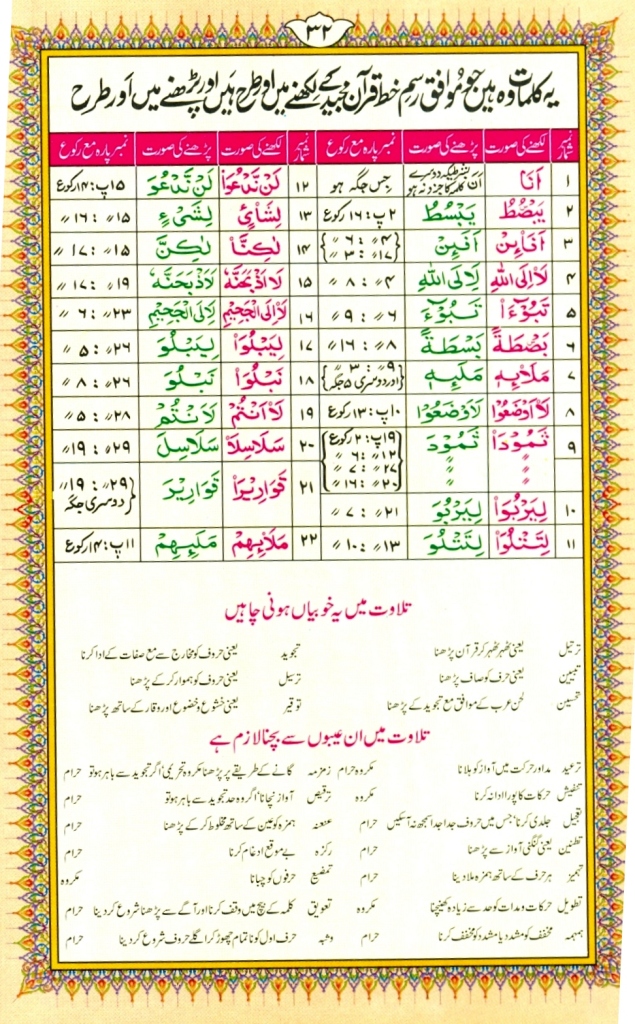 ۳۲
یہ کلمات وہ ہیں جو موافق رسم خط قرآن مجید کے لکھنے میں اور طرح ہیں اور پڑھنے میں اور طرح
نمبر شمار لکھنے کی صورت پڑھنے کی صورت نمبر پارہ مع رکوع نمبر شمار لکھنے کی صورت پڑھنے کی صورت نمبر پارہ مع رکوع
۱ اَنَا اَنَ جس جگہ ہو ۱۲ لَنْ نَّدْعُوَا۟ لَنْ نَّدْعُوَ ۱۵پ: ۱۴رکوع
۲ یَبْصُۜطُ یَبْسُطُ ۲پ: ۱۶ رکوع ۱۳ لِشَایْءٍ لِشَیْءٍ ۱۵〃 : ۱۶〃
۳ اَفَا۟ئِنْ اَفَئِنْ ۴〃 : ۶〃 ۱۷〃 : ۳〃 ۱۴ لٰکِنَّا۟ لٰکِنَّ ۱۵〃 : ۱۷〃
۴ لَا۟اِلَی اللّٰهِ لَاِلَی اللّٰهِ ۴〃 : ۸〃 ۱۵ لَا۟اَذْبَحَنَّهٗ لَاَذْبَحَنَّهٗ ۱۹〃 : ۱۷〃
۵ تَبُوْٓءَا۟ تَبُوْٓءَ ۶〃 : ۹〃 ۱۶ لَا۟اِلَی الْجَحِیْمِ لَاِلَی الْجَحِیْمِ ۲۳〃 : ۶〃
۶ بَصْۜطَةً بَسْطَةً ۸〃 : ۱۶〃 ۱۷ لِیَبْلُوَا۟ لِیَبْلُوَ ۲۶〃 : ۵〃
۷ مَلَا۟ئِهٖ مَلَئِهٖ ۹〃 : ۳〃 اور دوسری ۵ جگہ ۱۸ نَبْلُوَا۟ نَبْلُوَ ۲۶〃 : ۸〃
۸ لَا۟اَوْضَعُوْا لَاَوْضَعُوْا ۱۰پ: ۱۳رکوع ۱۹ لَا۟اَنْتُمْ لَاَنْتُمْ ۲۸〃 : ۵〃
۹ ثَمُوْدَا۟ ثَمُوْدَ ۱۹پ: ۲رکوع ۲۰ سَلَاسِلَا۟ سَلَاسِلَ ۲۹〃 : ۱۹〃
〃 〃 ۱۲〃 : ۶〃
〃 〃 ۲۷〃 : ۷〃 ۲۱ قَوَارِیْرَا۟ قَوَارِیْرَ ۲۹〃 : ۱۹〃 دوسری جگہ
۲۰〃 : ۱۶〃
۱۰ لِیَرْبُوَا۟ لِیَرْبُوَ ۲۱〃 : ۷〃
۱۱ لِتَتْلُوَا۟ لِتَتْلُوَ ۱۳〃 : ۱۰〃 ۲۲ مَلَا۟ئِهِمْ مَلَئِهِمْ ۱۱پ: ۱۴رکوع
تلاوت میں یہ خوبیاں ہونی چاہیں
ترتیل یعنی ٹھہر ٹھہر کر قرآن پڑھنا تجوید یعنی حروف کو مخارج سے مع صفات کے ادا کرنا
تبیین یعنی حرف کو صاف پڑھنا ترسیل یعنی حروف کو ہموار کر کے پڑھنا
تحسین لحن عرب کے موافق مع تجوید کے پڑھنا توقیر یعنی خشوع و خضوع اور وقار کے ساتھ پڑھنا
تلاوت میں ان عیبوں سے بچنا لازم ہے
ترعید مد اور حرکت میں آواز کو ہلانا مکروہ حرام زمزمہ گانے کے طریقے پر پڑھنا مکروہ تحریمی، اگر تجوید سے باہر ہو تو حرام
تنفیش حرکات کا پورا ادا نہ کرنا مکروہ ترقیص آواز نچانا، اگر وہ حد تجوید سے باہر ہو تو حرام
تعجیل جلدی کرنا، جس میں حروف جدا جدا سمجھ نہ آسکیں حرام عنعنہ ہمزہ کو عین کے ساتھ مخلوط کر کے پڑھنا حرام
تطنین یعنی گنگنی آواز سے پڑھنا حرام رکزہ بے موقع ادغام کرنا حرام
تہمیز ہر حرف کے ساتھ ہمزہ ملا دینا حرام تمضیغ حرفوں کو چبانا مکروہ
تطویل حرکات و مدات کو حد سے زیادہ کھینچنا مکروہ تعویق کلمہ کے بیچ میں وقف کرنا اور آگے سے پڑھنا شروع کر دینا حرام
ہمہمہ مخفف کو مشدد یا مشدد کو مخفف کرنا حرام وثبہ حرف اول کو نا تمام چھوڑ کر اگلے حروف شروع کر دینا حرام